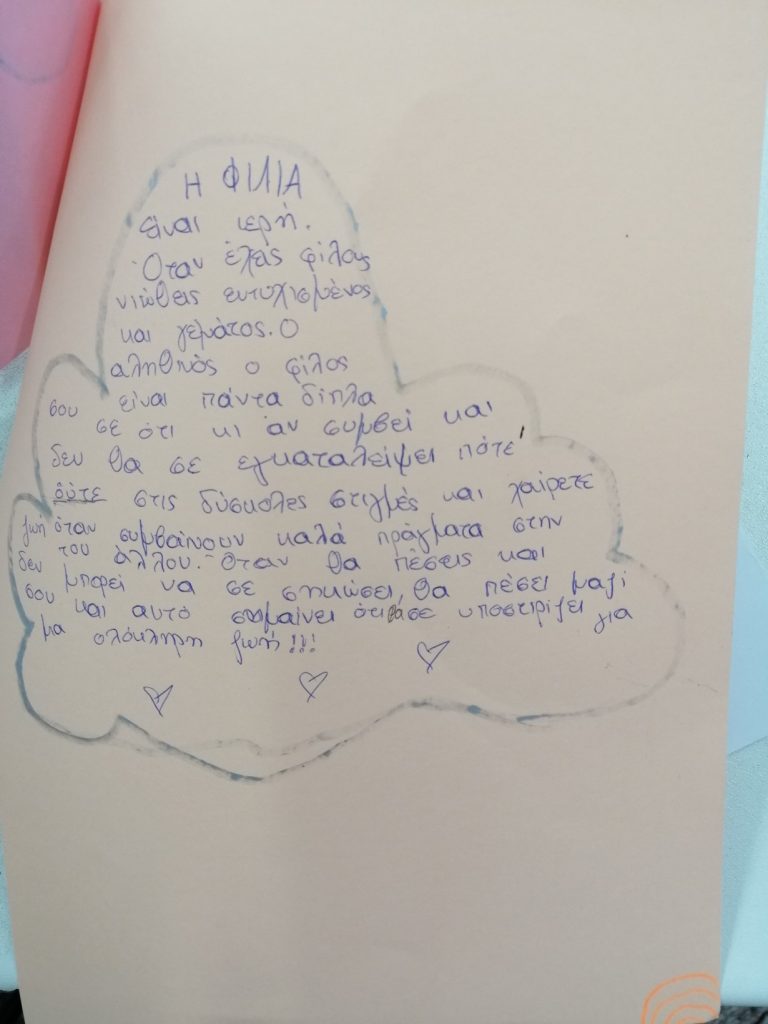 Η ΦΙΛΙΑ
είναι ιερή.
Όταν έχεις φίλους
νιώθεις ευτυχισμένος
και γεμάτος. Ο
αληθινός ο φίλος
σου είναι πάντα δίπλα
σε ότι κι αν συμβεί και
δεν θα σε εγκαταλείψει πότε
ούτε στις δύσκολες στιγμές και χαίρετε
όταν συμβαίνουν καλά πράγματα στην
ζωή του άλλου. Όταν θα πέσεις και
δεν μπορεί να σε σηκώσει, θα πέσει μαζί
σου και αυτό σημαίνει ότι θα σε υποστιρίζει για
μα ολόκληρη ζωή!!!